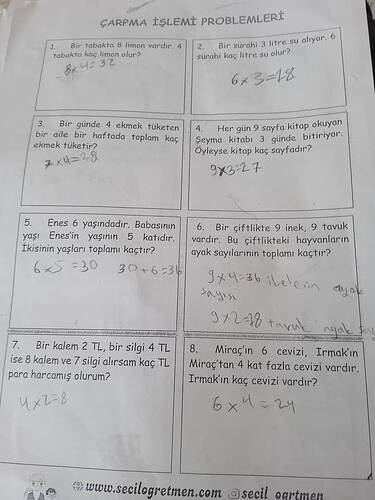 ÇARPMA İŞLEMİ PROBLEMLERİ
1. Bir tabakta 8 limon vardır. 4
tabakta kaç limon olur?
8x4=32
2. Bir sürahi 3 litre su alıyor. 6
sürahi kaç litre su olur?
6x3=18
3. Bir günde 4 ekmek tüketen
bir aile bir haftada toplam kaç
ekmek tüketir?
7x4=28
4. Her gün 9 sayfa kitap okuyan
Şeyma kitabı 3 günde bitiriyor.
Öyleyse kitap kaç sayfadır?
9x3=27
5. Enes 6 yaşındadır. Babasının
yaşı Enes'in yaşının 5 katıdır.
İkisinin yaşları toplamı kaçtır?
6x5=30 30+6=36
6. Bir çiftlikte 9 inek, 9 tavuk
vardır. Bu çiftlikteki hayvanların
ayak sayılarının toplamı kaçtır?
9x4=36 ayak
sayısı
9x2=18 tavuk ayak
7. Bir kalem 2 TL, bir silgi 4 TL
ise 8 kalem ve 7 silgi alırsam kaç TL
para harcamış olurum?
4x2=8
8. Miraç'ın 6 cevizi, Irmak'ın
Miraç'tan 4 kat fazla cevizi vardır.
Irmak'ın kaç cevizi vardır?
6x4=24
www.secilogretmen.com @secil_ogrtmen